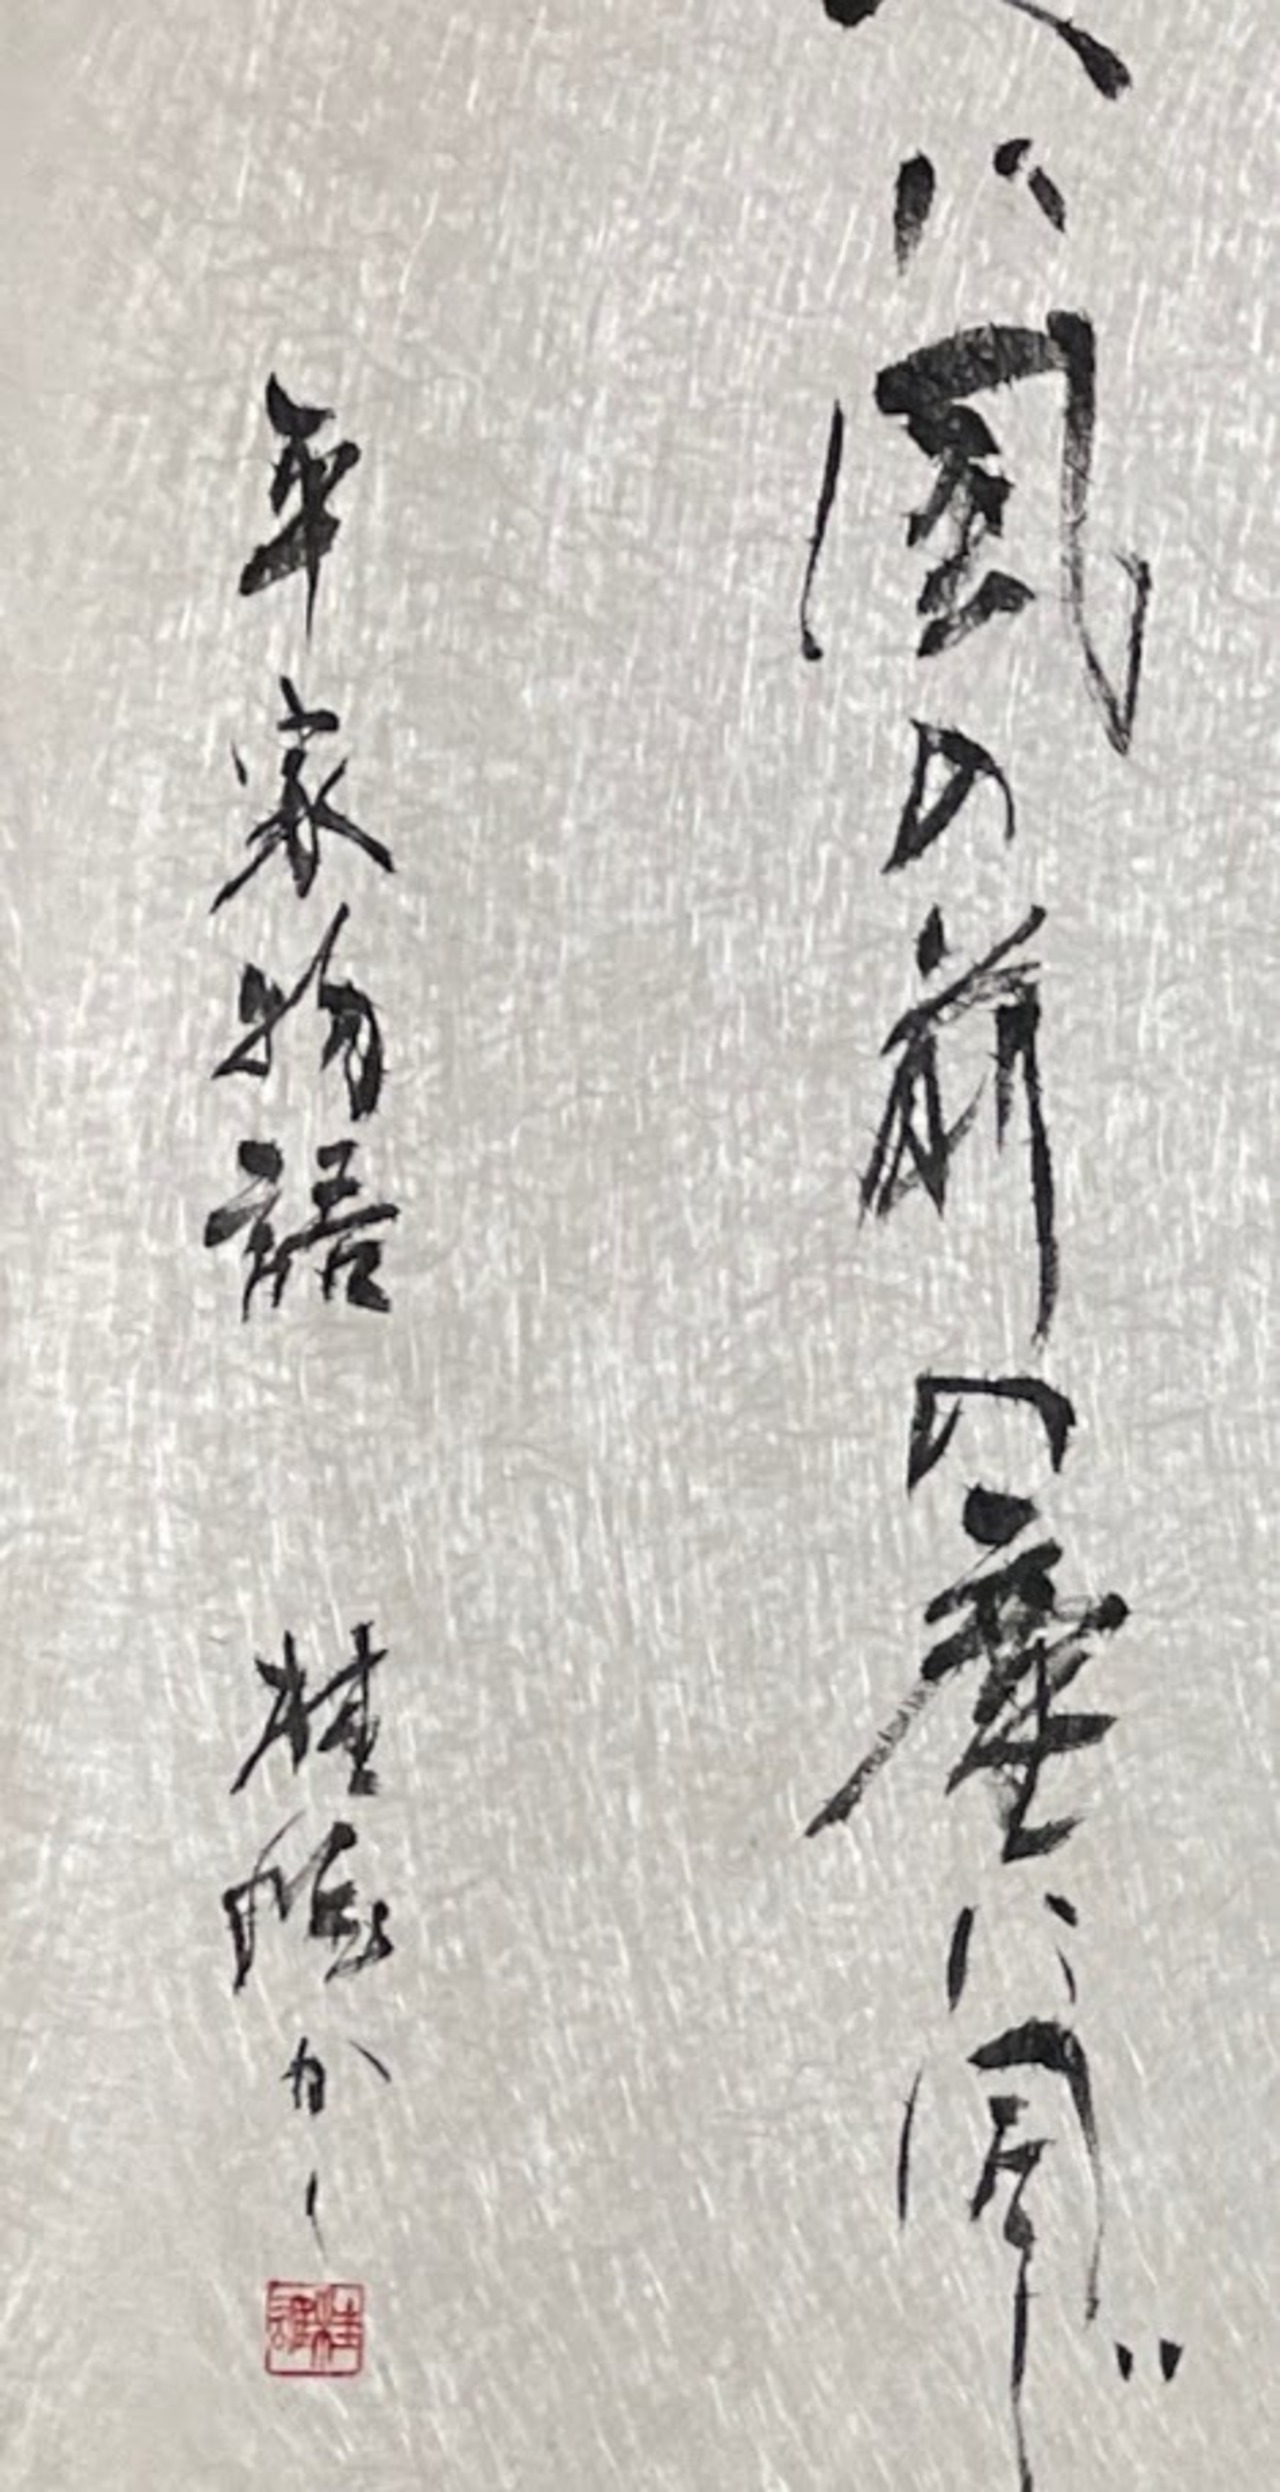 へに風の前の塵に同じ
平家物語 桂 かく